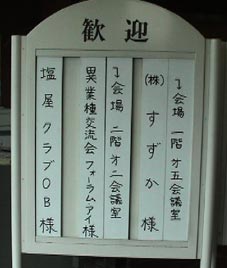 歓迎
㈱すずか様
↴会場 一階 才五会議室
異業種交流会フォーラム・アイ様
↴会場 二階 才二会議室
塩屋クラブOB様